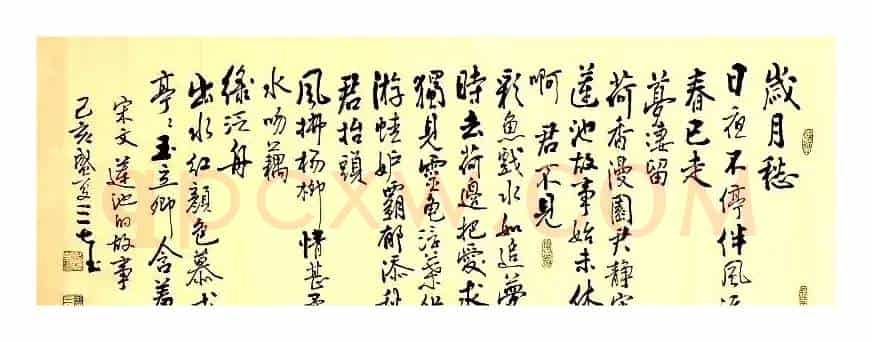 歲月愁
日夜不停伴風
春已走
夢淒留
荷香漫園共静
蓮池故事始未休
啊 君不見
彩魚戲水如追夢
時去荷邊把愛求
獨見靈龜浮葉
游蛙妒霸郁添
君抬頭
風拂楊柳情甚
水吻藕
綠泛舟
出水紅顏色慕求
亭〻玉立卿含羞
宋文 蓮池的故事
己亥盛夏三七
pcxw.com